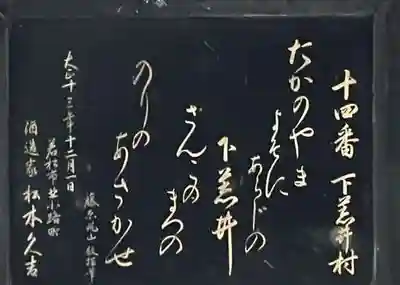 十四番 下荒井村
たかのやま
よそに
あらじの
下荒井
さんこの
まつの
のりの
あさかせ
大正十三年十二月一日
若松市北小路町
酒造家 松本久吉